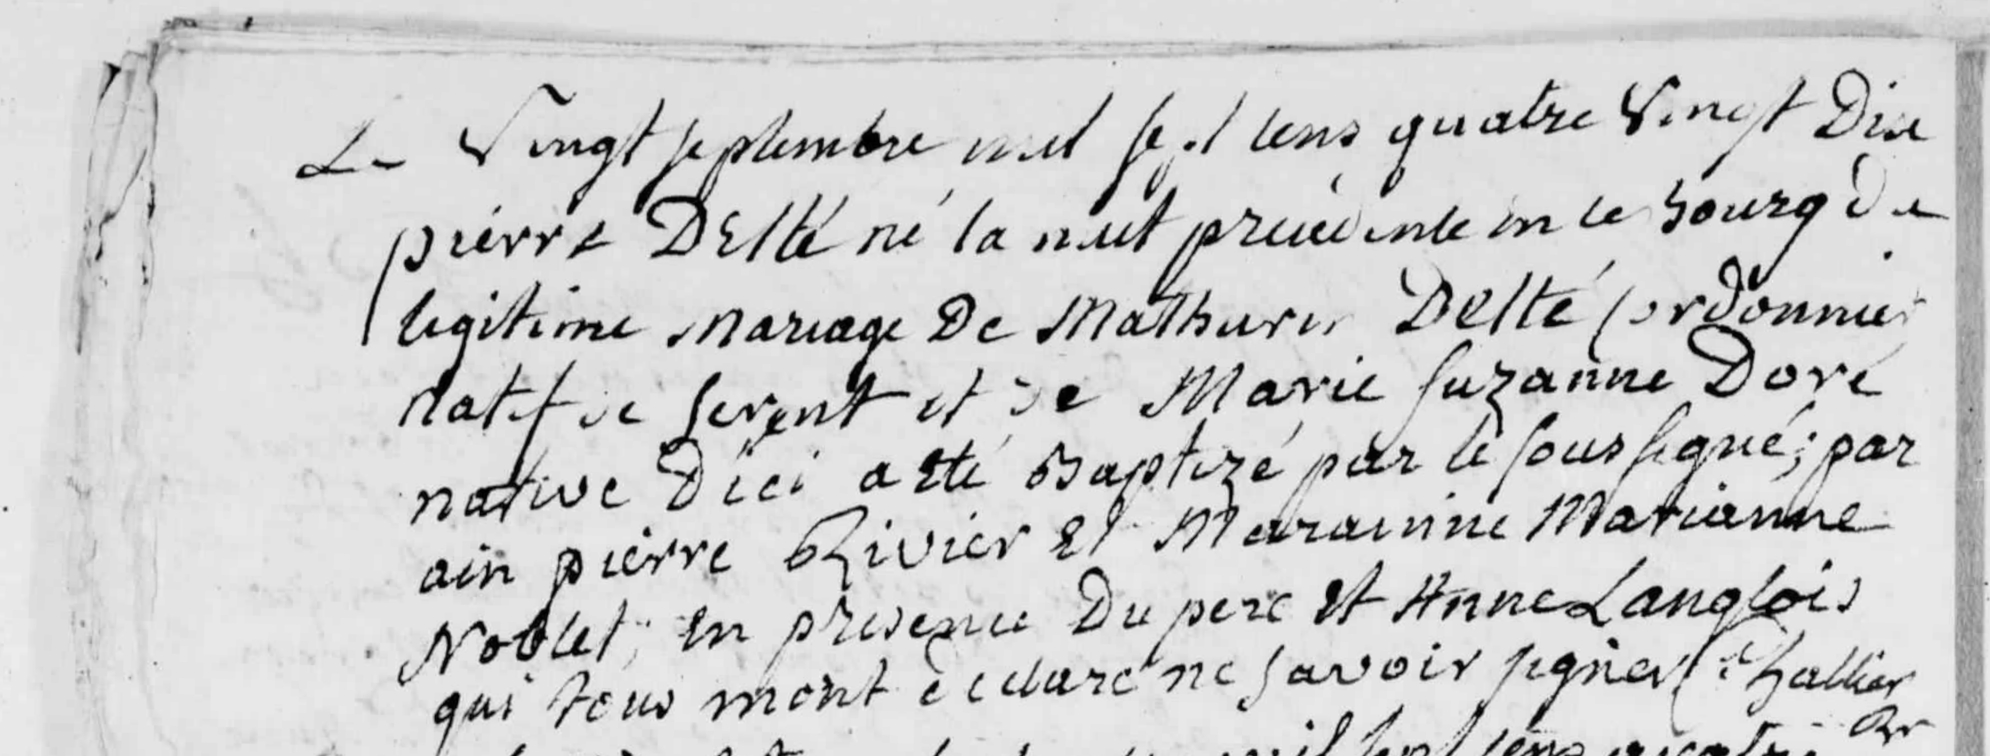 Le Vingt septembre mil sept cens quatre Vingt Dix
pierre DElté né la nuit precedente en ce bourg de
legitime Mariage De Mathurin Delté Cordonnier
natif de serent et de Marie suzanne Doré
native D'ici a Eté Baptizé par le sous signé; par
ain pierre Rivier Et Marainne Marianne
Noblet; En presence Du pere Et Anne Langlois
qui tous mont declaré ne savoir signer Challier
mil sept cens quatre